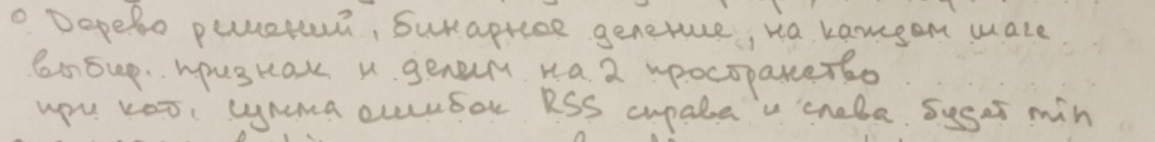 ° Дерево решений, бинарное деление, на каждом шаге
выбир. признак и делим на 2 пространство
при кот. сумма ошибок RSS справа и слева будет min